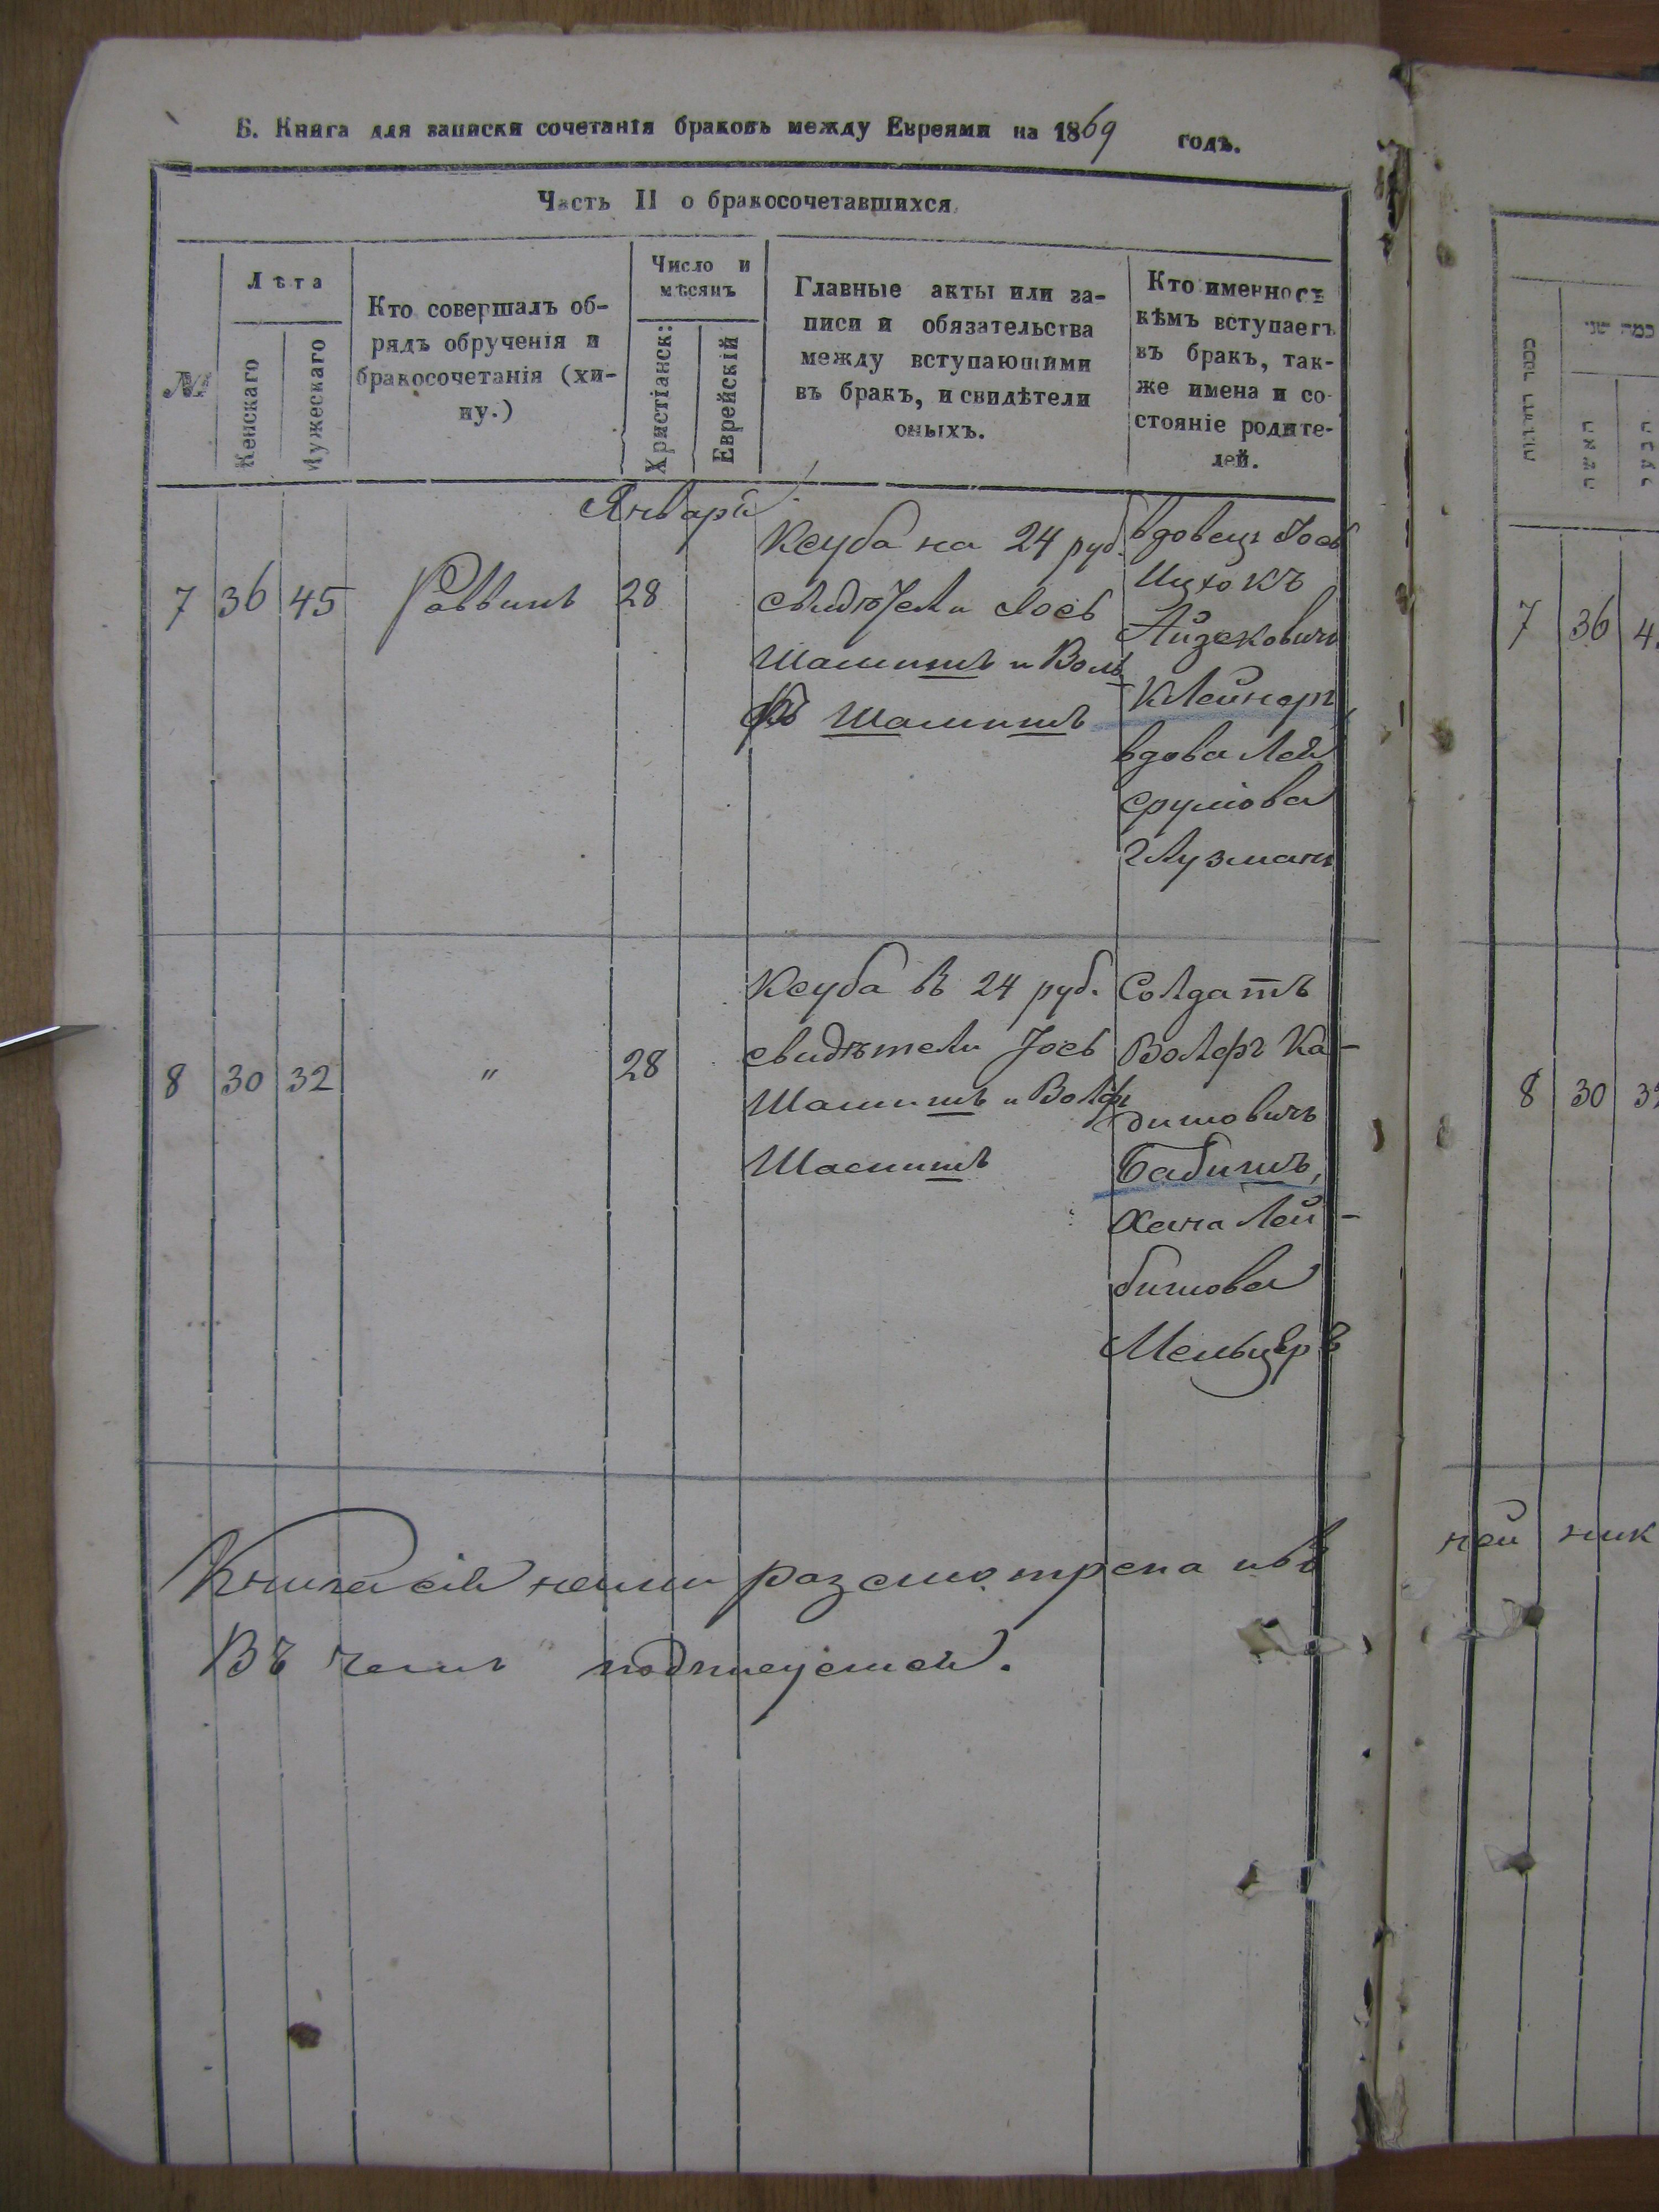 Б. Книга для записки сочетанія браковъ между Евреями на 1869 годъ.
Часть II о бракосочетавшихся
№
Лѣта
Женскаго
Мужескаго
Кто совершалъ об-
рядъ обрученія и
бракосочетанія (хи-
ну.)
Число и
мѣсяцъ
Христіанск:
Еврейскій
Главные акты или за-
писи и обязательства
между вступающими
въ бракъ, и свидѣтели
оныхъ.
Кто именно съ
кѣмъ вступаетъ
въ бракъ, так-
же имена и со-
стояніе родите-
лей.
Январь
7 36 45 Раввинъ 28
Ксуба на 24 руб.
свидѣтели Іось
Шамишъ и Воль
фъ Шамишъ
вдовец Іось
Ицхокъ
Айзековичъ
Клейнерг
вдова Лея
Срулiова
Глузманъ
8 30 32 " 28
Ксуба в 24 руб.
свидѣтели Іось
Шамишъ и Волфъ
Шамишъ
Солдатъ
Волфъ Ка-
дишовичъ
Бабишъ,
Хана Лей-
бишова
Мельцеръ
Книга сія нами разсмотрена ивъ
Въ чемъ подписуемся.
מספר החתונות
כמה שני
האשה
הבעל
7 36 4
8 30 3
ней ник